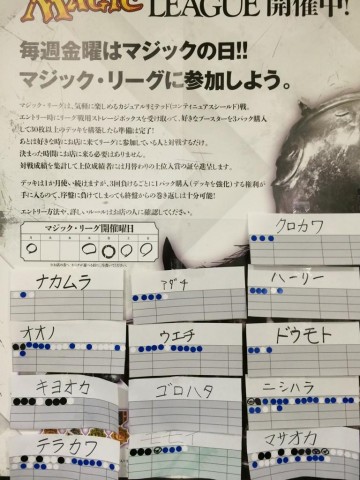 Magic LEAGUE 開催中!
毎週金曜はマジックの日!!
マジック・リーグに参加しよう。
マジック・リーグは、気軽に楽しめるカジュアルリミテッド(コンティニュアスシールド)戦。
エントリー時にリーグ戦用ストレージボックスを受け取って、好きなブースターを3パック購入
して30枚以上のデッキを構築したら準備は完了!
あとは好きな時にお店に来てリーグに参加している人と対戦するだけ。
決まった時間にお店に来る必要はありません。
対戦成績を集計して上位成績者には月替わりの上位入賞の証を進呈します。
デッキは1か月使い続けますが、3回負けるごとに1パック購入(デッキを強化)する権利が
手に入るので、序盤に負けてしまっても終盤からの巻き返しは十分可能!
エントリー方法や、詳しいルールはお店の人に確認してください。
マジック・リーグ開催曜日
クロカワ
ナカムラ
アダチ
ハーリー
オオノ
ウエチ
ドウモト
キヨオカ
ゴロハタ
ニシハラ
テラカワ
マサオカ